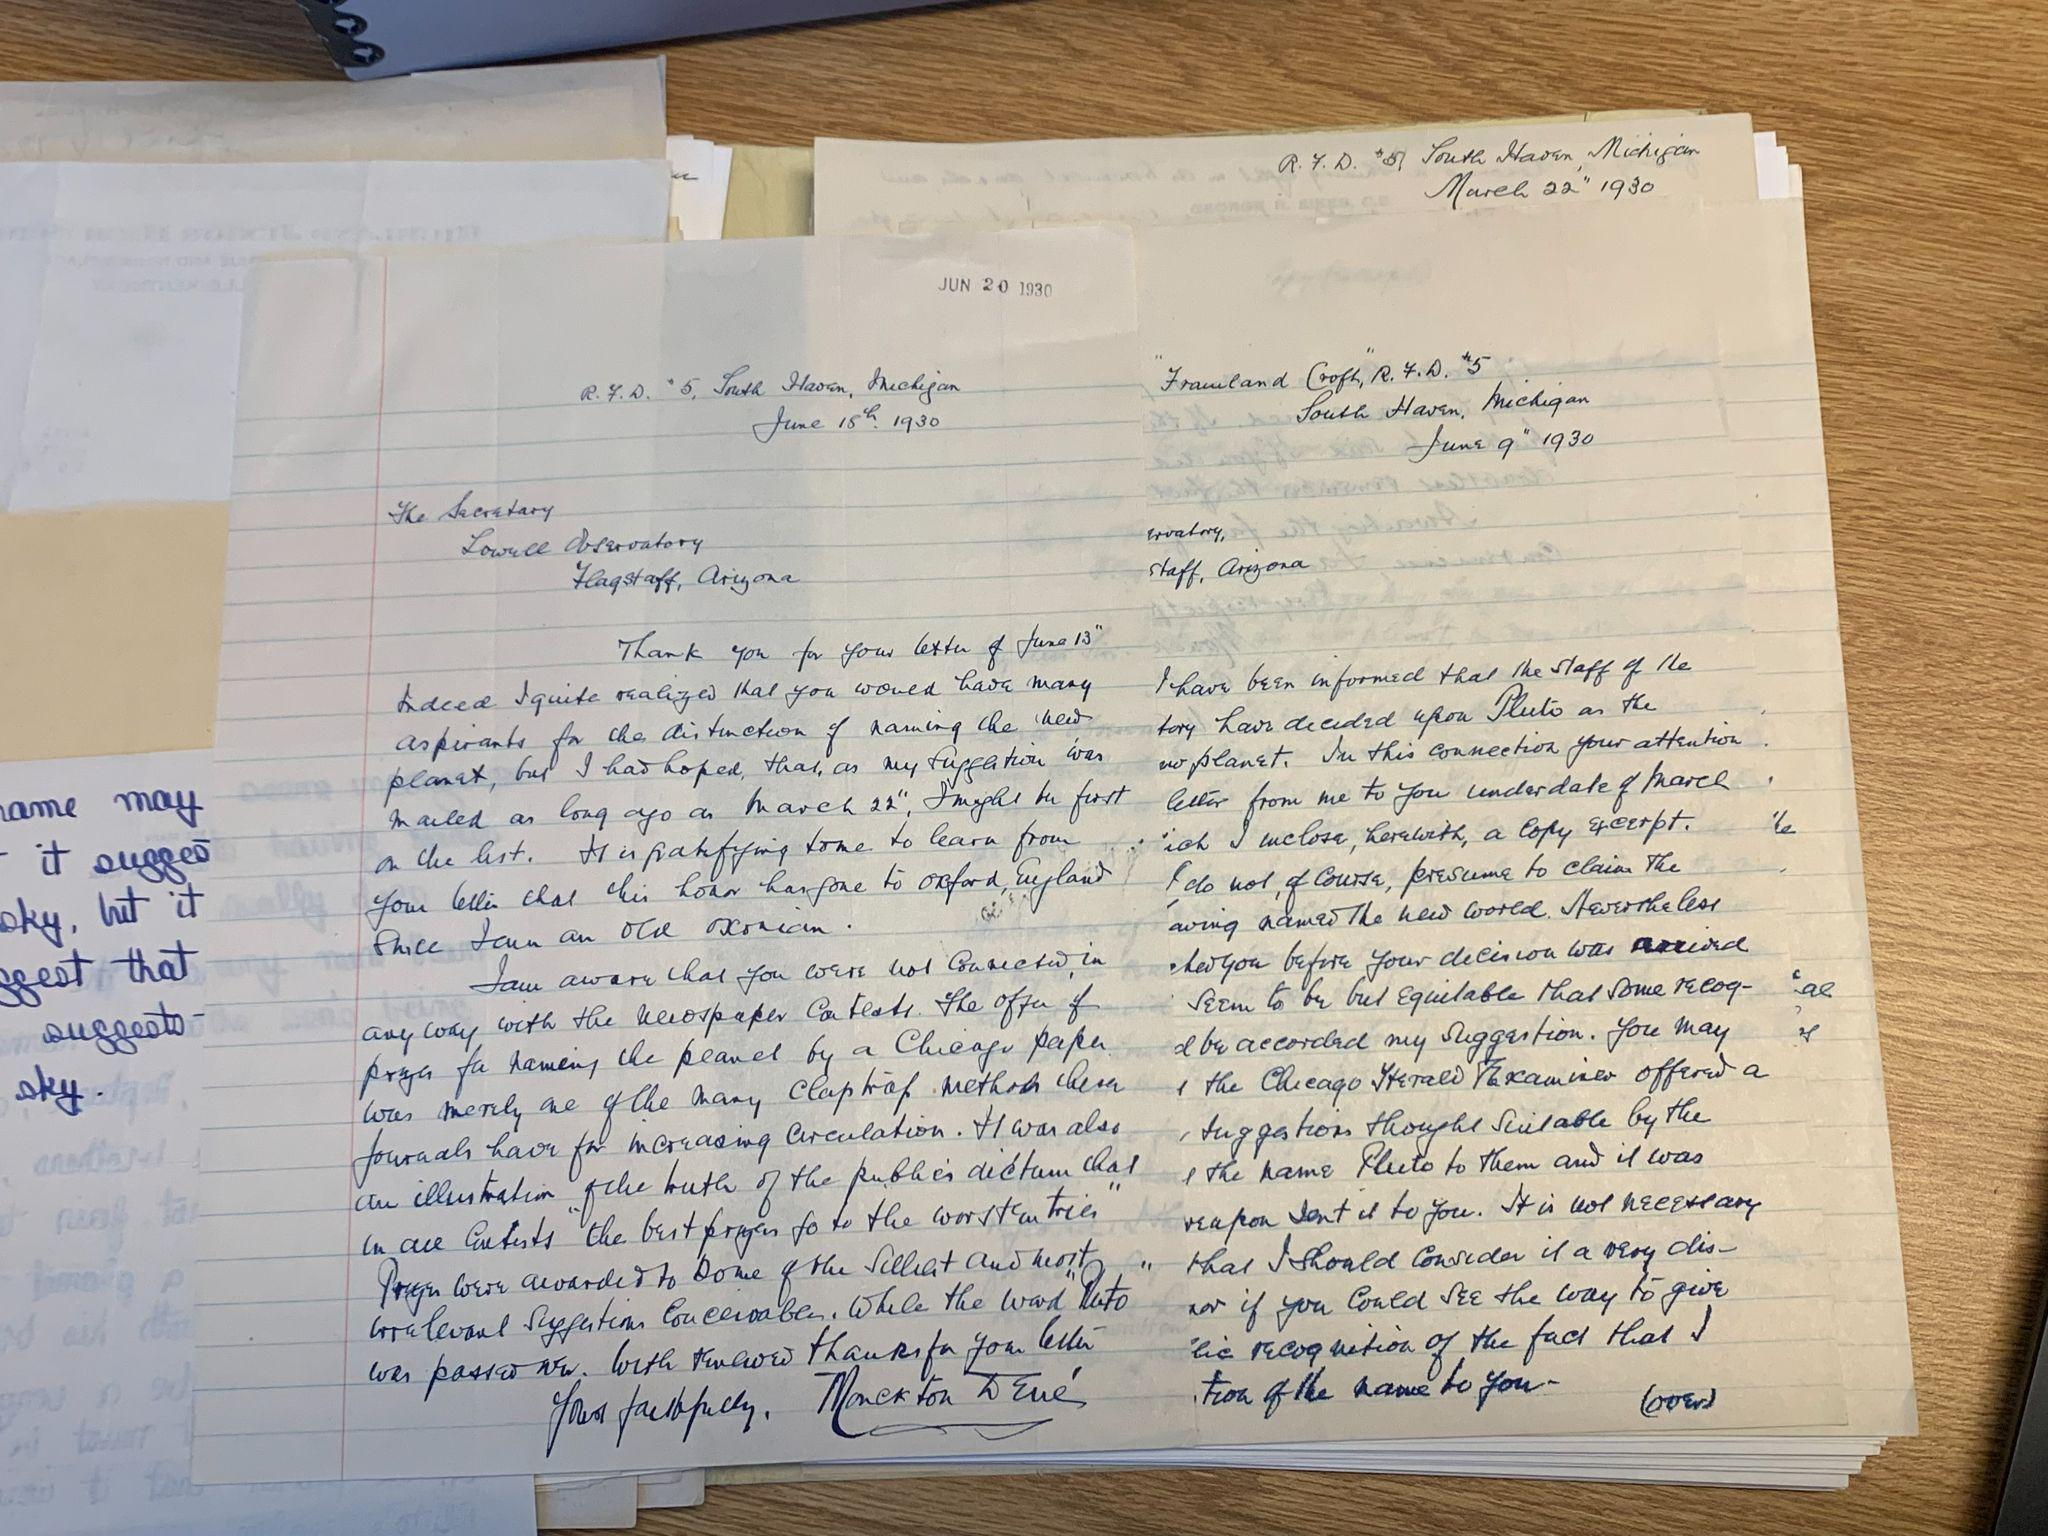 R.F.D. #5, South Haven, Michigan
March 22" 1930
JUN 20 1930
R.F.D. #5, South Haven, Michigan
June 18th. 1930
The Secretary
Lowell Observatory
Flagstaff, Arizona
Thank you for your letter of June 13"
Indeed I quite realized that you would have many
aspirants for the distinction of naming the new
planet, but I had hoped, that, as my suggestion was
mailed as long ago as March 22", I might be first
on the list. It is gratifying to me to learn from
your letter that this honor has gone to Oxford, England
since I am an old Oxonian.
I am aware that you were not connected, in
any way with the newspaper contests. The offer of
prizes for naming the planet by a Chicago paper
was merely one of the many claptrap methods these
journals have for increasing circulation. It was also
an illustration of the truth of the public's dictum that
in all contests "the best prizes go to the worst entries"
Prizes were awarded to some of the silliest and most
irrelevant suggestions conceivable. While the word "Pluto"
was passed over. With renewed thanks for your letter
Yours faithfully, Monckton Dene
"Framland Croft," R.F.D. #5
South Haven, Michigan
June 9" 1930
ervatory,
staff, Arizona
I have been informed that the staff of the
tory have decided upon Pluto as the
planet. In this connection your attention
letter from me to you under date of March
ich I inclose, herewith, a copy excerpt.
I do not, of course, presume to claim the
aving named the new world. Nevertheless
hed you before your decision was arrived
seem to be but equitable that some recog-
d be accorded my suggestion. You may
the Chicago Herald & Examiner offered a
suggestions thought suitable by the
the name Pluto to them and it was
reupon sent it to you. It is not necessary
that I should consider it a very dis-
nor if you could see the way to give
lic recognition of the fact that I
tion of the name to you-
(over)
name may
it sugges
sky, but it
ggest that
suggests-
sky.